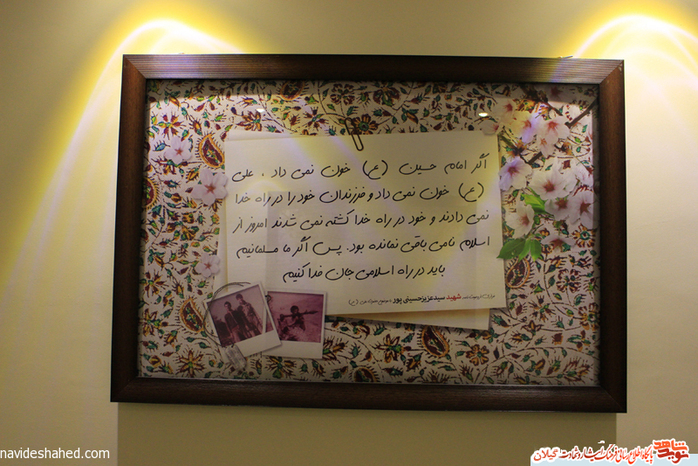 اگر امام حسین (ع) خون نمی داد ، علی
(ع) خون نمی داد و فرزندان خود را در راه خدا
نمی دادند و خود در راه خدا کشته نمی شدند امروز از
اسلام نامی باقی نمانده بود. پس اگر ما مسلمانیم
باید در راه اسلامی جان فدا کنیم
شهید سیدعزیزحسینی پور
navideshahed.com
نوید شاهد
پایگاه اطلاع رسانی فرهنگ ایثار و شهادت گیلان